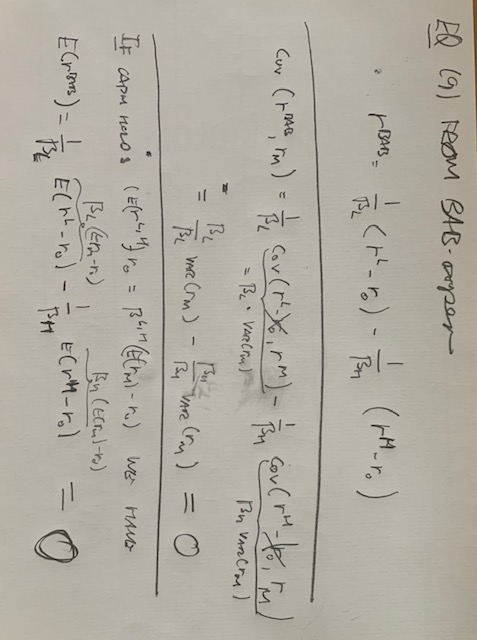 EQ (9) FROM BAB-paper
• r^BAB = 1/β_L (r^L - r_0) - 1/β_H (r^H - r_0)
Cov (r^BAB, r_M) = 1/β_L Cov(r^L - r_0, r^M) - 1/β_H Cov(r^H - r_0, r_M)
= β_L · VAR(r_M) β_H VAR(r_M)
= β_L/β_L VAR(r_M) - β_H/β_H VAR(r_M) = 0
IF CAPM HOLDS (E(r^L,H) r_0 = β^L,H (E(r_M) - r_0) WE HAVE
β_L (E(r_M - r_0) β_H (E(r_M) - r_0)
E(r^BAB) = 1/β_L E(r^L - r_0) - 1/β_H E(r^H - r_0) = 0